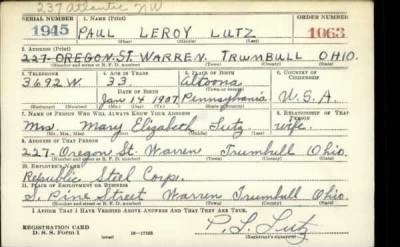 237 Atlantic NW
SERIAL NUMBER 1. NAME (Print) ORDER NUMBER
1945 PAUL LEROY LUTZ 1063
(First) (Middle) (Last)
2. ADDRESS (Print)
227 OREGON ST. WARREN, TRUMBULL OHIO.
(Number and street or R. F. D. number) (Town) (County) (State)
3. TELEPHONE 4. AGE IN YEARS 5. PLACE OF BIRTH 6. COUNTRY OF CITIZENSHIP
3692W. 33 Altoona
DATE OF BIRTH (Town or county)
Jan 14 1907 Pennsylvania U.S.A.
(Exchange) (Number) (Mo.) (Day) (Yr.) (State or country)
7. NAME OF PERSON WHO WILL ALWAYS KNOW YOUR ADDRESS 8. RELATIONSHIP OF THAT PERSON
Mrs Mary Elizabeth Lutz. wife.
(Mr., Mrs., Miss) (First) (Middle) (Last)
9. ADDRESS OF THAT PERSON
227- Oregon St. Warren Trumbull Ohio.
(Number and street or R. F. D. number) (Town) (County) (State)
10. EMPLOYER'S NAME
Republic Steel Corp.
11. PLACE OF EMPLOYMENT OR BUSINESS
S. Pine Street Warren Trumbull Ohio.
(Number and street or R. F. D. number) (Town) (County) (State)
I AFFIRM THAT I HAVE VERIFIED ABOVE ANSWERS AND THAT THEY ARE TRUE.
REGISTRATION CARD
D. S. S. FORM 1 16-17105 P. L. Lutz
(Registrant's signature)